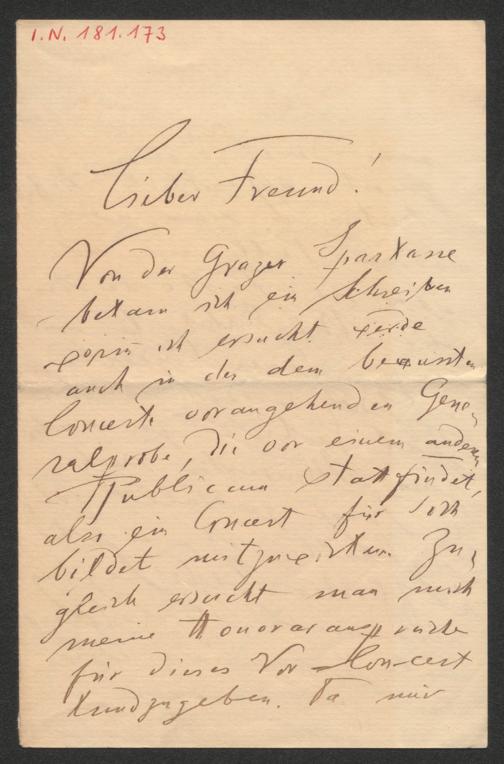 I.N. 181.173
Lieber Freund!
Von der Grazer Sparkasse
bekam ich ein Schreiben
worin ich ersucht werde
auch in der dem bewussten
Concerte vorangehenden Gene-
ralprobe, die vor einem anderen
Publicum stattfindet,
also ein Concert für sich
bildet mitzuwirken. Zu-
gleich ersucht man mich
meine Honoraransprüche
für dieses Vor-Concert
kundzugeben. Da mir